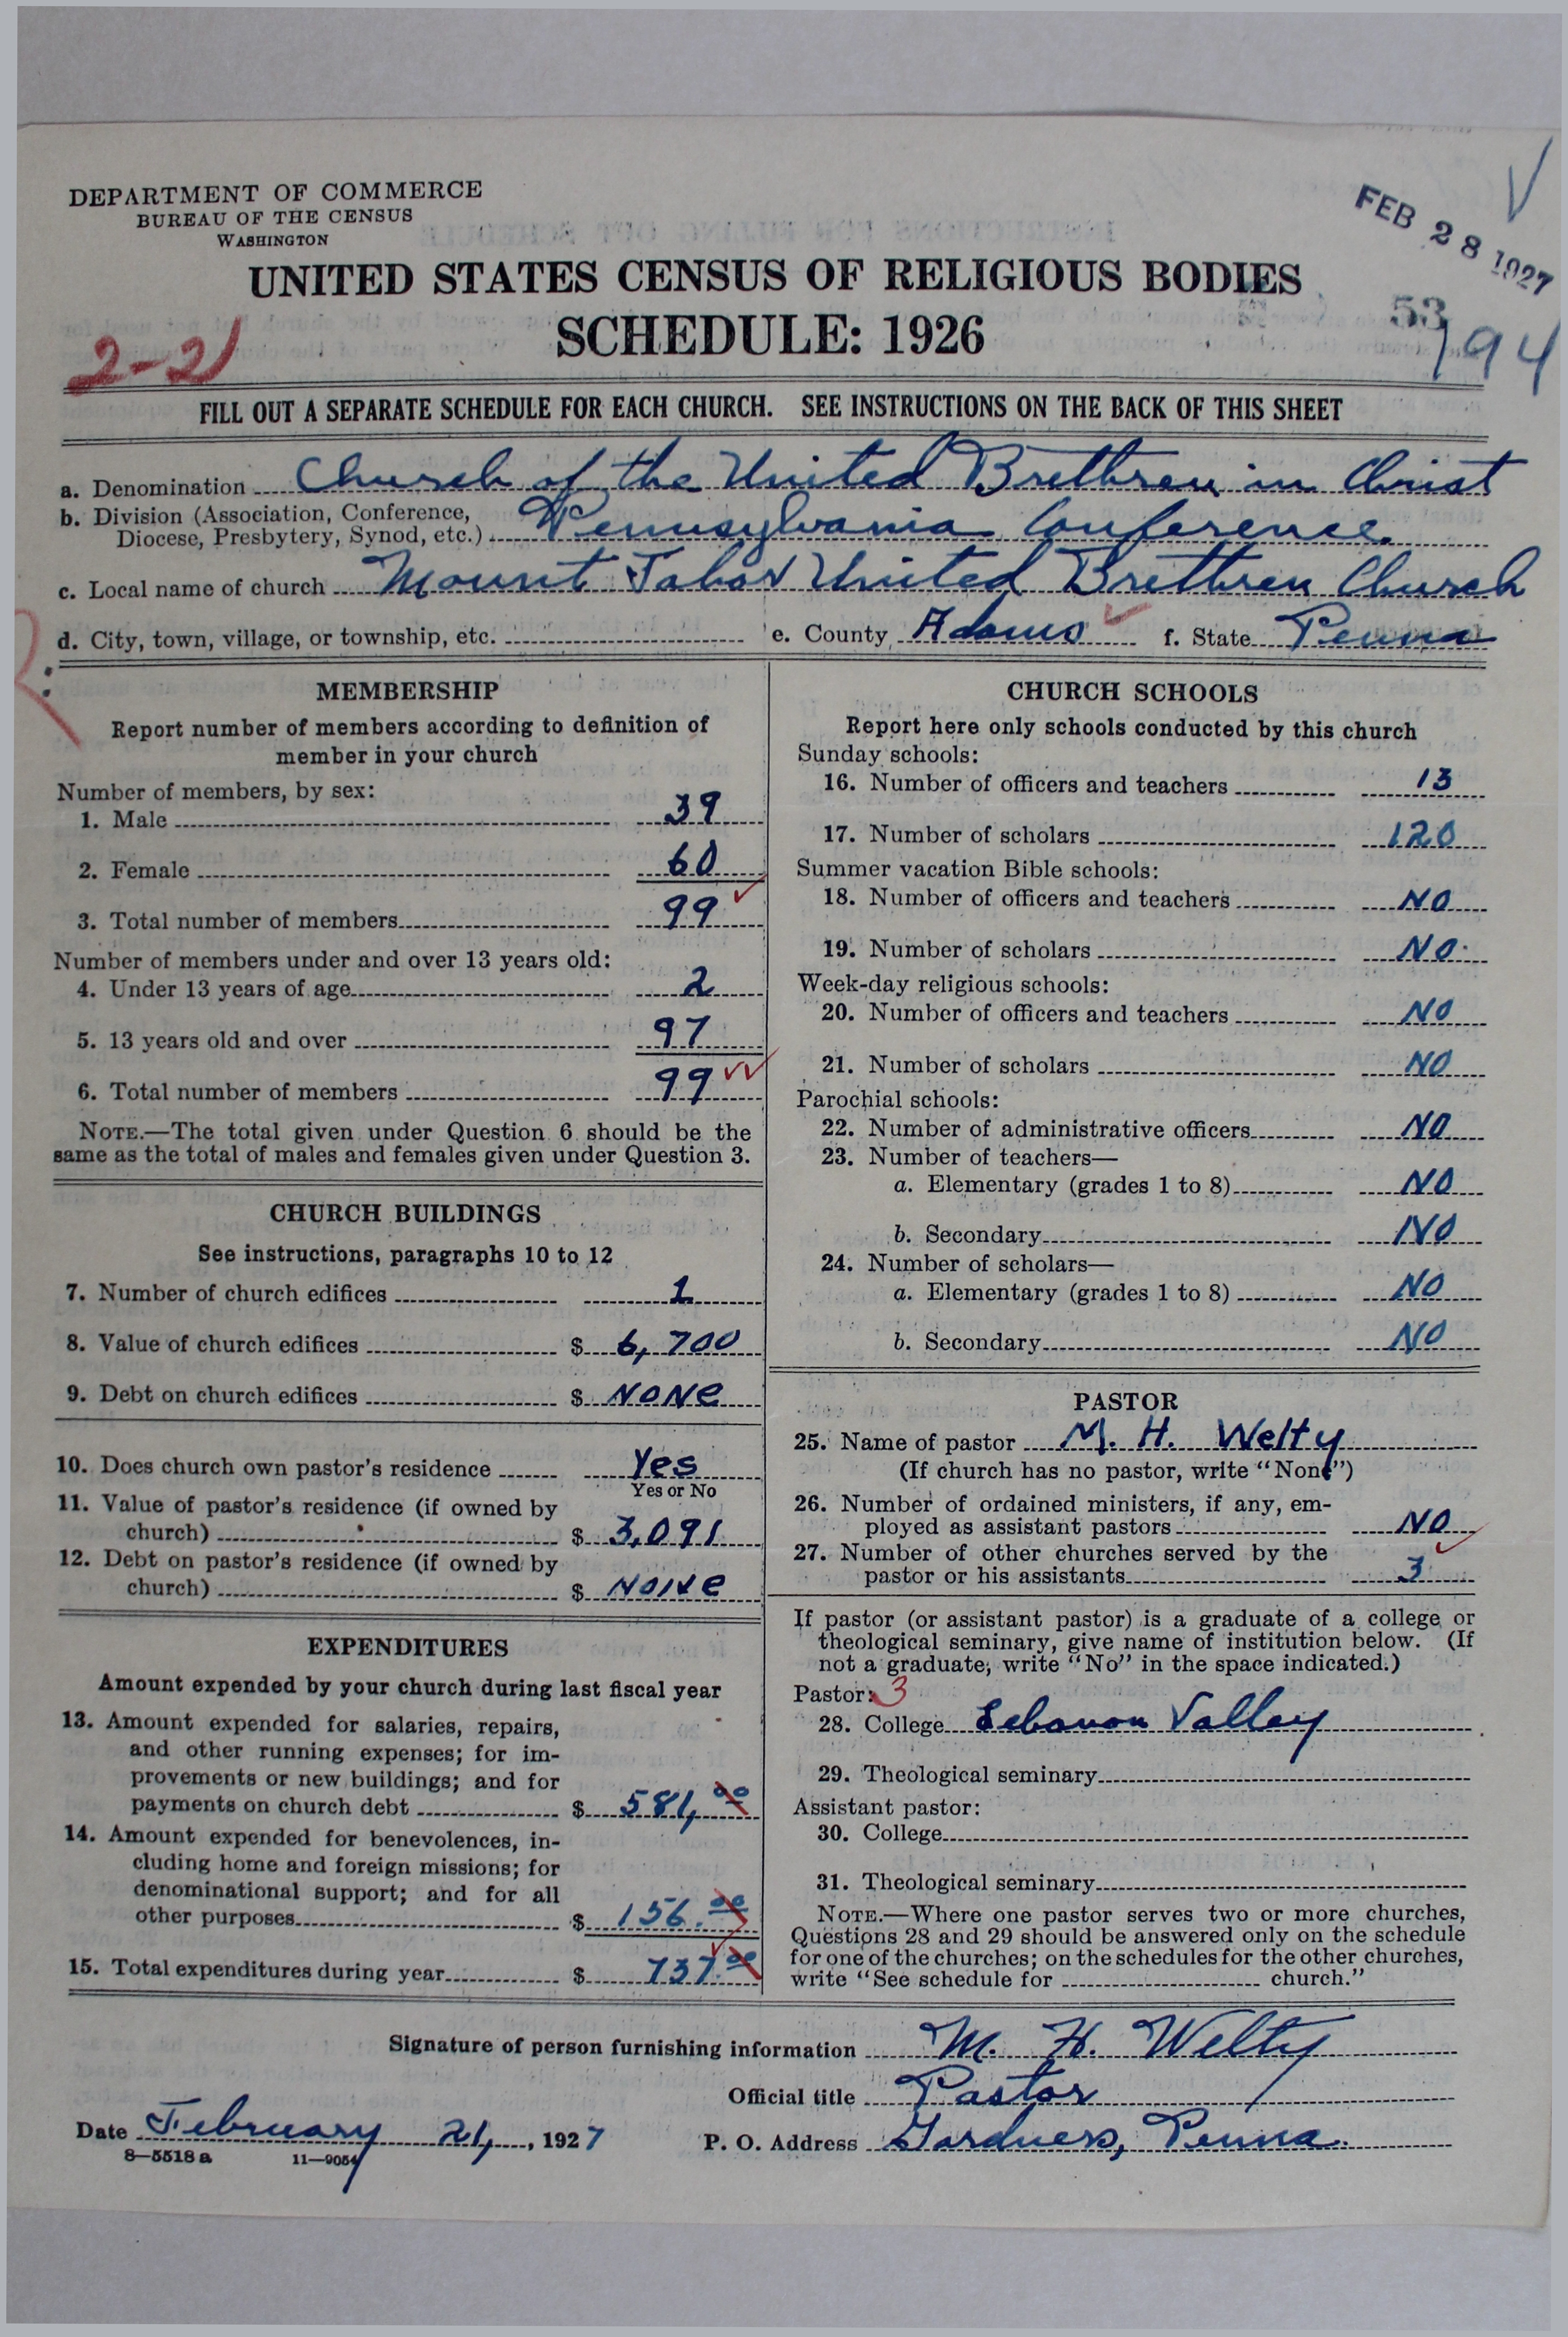 DEPARTMENT OF COMMERCE
BUREAU OF THE CENSUS
WASHINGTON
FEB 28 1927
UNITED STATES CENSUS OF RELIGIOUS BODIES
SCHEDULE: 1926
53
194
2-21
FILL OUT A SEPARATE SCHEDULE FOR EACH CHURCH. SEE INSTRUCTIONS ON THE BACK OF THIS SHEET
a. Denomination Church of the United Brethren in Christ
b. Division (Association, Conference, Diocese, Presbytery, Synod, etc.) Pennsylvania Conference.
c. Local name of church Mount Tabor United Brethren Church
d. City, town, village, or township, etc. e. County Adams f. State Penna
MEMBERSHIP
Report number of members according to definition of
member in your church
Number of members, by sex:
1. Male 39
2. Female 60
3. Total number of members 99
Number of members under and over 13 years old:
4. Under 13 years of age 2
5. 13 years old and over 97
6. Total number of members 99
NOTE.—The total given under Question 6 should be the
same as the total of males and females given under Question 3.
CHURCH BUILDINGS
See instructions, paragraphs 10 to 12
7. Number of church edifices 1
8. Value of church edifices $ 6,700
9. Debt on church edifices $ NONe
10. Does church own pastor's residence Yes
Yes or No
11. Value of pastor's residence (if owned by
church) $ 3,091
12. Debt on pastor's residence (if owned by
church) $ NONe
EXPENDITURES
Amount expended by your church during last fiscal year
13. Amount expended for salaries, repairs,
and other running expenses; for im-
provements or new buildings; and for
payments on church debt $ 581,00
14. Amount expended for benevolences, in-
cluding home and foreign missions; for
denominational support; and for all
other purposes $ 156.00
15. Total expenditures during year $ 737.00
CHURCH SCHOOLS
Report here only schools conducted by this church
Sunday schools:
16. Number of officers and teachers 13
17. Number of scholars 120
Summer vacation Bible schools:
18. Number of officers and teachers NO
19. Number of scholars NO
Week-day religious schools:
20. Number of officers and teachers NO
21. Number of scholars NO
Parochial schools:
22. Number of administrative officers NO
23. Number of teachers—
a. Elementary (grades 1 to 8) NO
b. Secondary NO
24. Number of scholars—
a. Elementary (grades 1 to 8) NO
b. Secondary NO
PASTOR
25. Name of pastor M. H. Welty
(If church has no pastor, write "None")
26. Number of ordained ministers, if any, em-
ployed as assistant pastors NO
27. Number of other churches served by the
pastor or his assistants 3
If pastor (or assistant pastor) is a graduate of a college or
theological seminary, give name of institution below. (If
not a graduate, write "No" in the space indicated.)
Pastor: 3
28. College Lebanon Valley
29. Theological seminary
Assistant pastor:
30. College
31. Theological seminary
NOTE.—Where one pastor serves two or more churches,
Questions 28 and 29 should be answered only on the schedule
for one of the churches; on the schedules for the other churches,
write "See schedule for church."
Signature of person furnishing information M. H. Welty
Official title Pastor
Date February 21, 1927 P. O. Address Gardners, Penna.
8—5518 a 11—9054